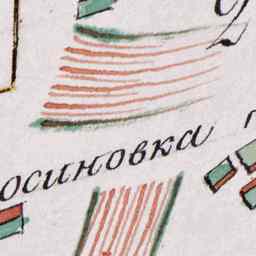 осиновка